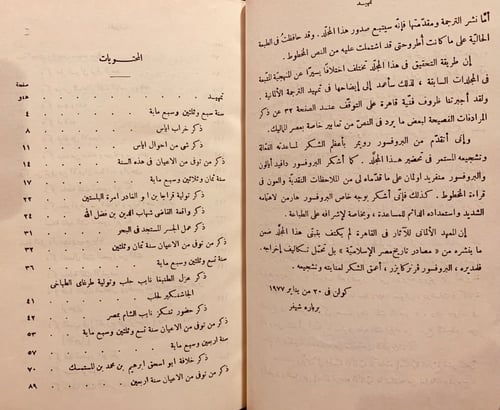 تمهيد
أمّا نشر الترجمة ومقدّمتها فإنّه سيتبع صدور هذا المجلّد. وقد حافظتُ في الطبعة
الحاليّة على ما كانت أطروحتي قد اشتملت عليه من النص المخطوط.
إن طريقة التحقيق في هذا المجلّد تختلف اختلافًا يسيرًا عن المنهجيّة المتّبعة
في المجلدات السابقة ، لذلك سأعمد إلى إيضاحها في تمهيد الترجمة الألمانية .
ولقد أجبرتنا ظروف فنّية قاهرة على التوقّف عند الصفحة ٣٢ عن ذكر
المرادفات الفصيحة لبعض ما يرد في النص من تعابير خاصة بعصر المماليك.
وإنى أتقدّم من البروفسور رويمر بأعظم الشكر لمساعدته الفعّالة
وتشجيعه المستمر في تحضير هذا المجلّد. كما أشكر البروفسور دافيد أيالون
والبروفسور منفريد اولمان على ما قدّماه لى من الملاحظات النقديّة والعون في
قراءة المخطوط. كذلك فإنّى أشكر بوجه خاص البروفسور هارمن لاهتمامه
الشديد واستعداده الدائم للمساعدة ، وبخاصة لإشرافه على الطباعة .
إن المعهد الألمانى للآثار فى القاهرة لم يكتف بتبنّى هذا المجلّد ضمن
ما ينشره من « مصادر تاريخ مصر الإسلاميّة » بل تحمّل تكاليف إخراجه.
فلمديره ، البروفسور فرنركايزر ، أعمق الشكر لعنايته وتشجيعه.
كولن فى ٢٠ من يناير ١٩٧٧
برباره شيفر
المحتويات
صفحة
تمهيد . . . هـ و
سنة ست وثلثين وسبع ماية . . . ٤
ذكر خراب اياس . . . ٨
ذكر شى من احوال اياس . . . ١١
ذكر من توفى من الاعيان فى هذه السنة . . . ١٤
سنة ثمان وثلاثين وسبع ماية . . . ١٧
ذكر تولية قراجا بن ا و الغادر امرة البلستين . . . ٢٢
ذكر واقعة القاضى شهاب الدين بن فضل الله . . . ٢٤
ذكر عمل الجسر المستجد فى البحر . . . ٣١
ذكر من توفى من الاعيان سنة ثمان وثلثين . . . ٣٢
سنة تسع وثلثين وسبع ماية . . . ٣٦
ذكر عزل الطنبغا نايب حلب وتولية طرغاى الطباخى
الجاشنكير لحلب . . . ٤١
ذكر حضور تنكز نايب الشام بمصر . . . ٤٢
ذكر من توفى من الاعيان سنة تسع وثلثين وسبع ماية . . . ٥٣
سنة اربعين وسبع ماية . . . ٥٧
ذكر خلافة ابو اسحق ابرهيم بن محمد بن المستمسك . . . ٧٠
ذكر من توفى من الاعيان سنة اربعين . . . ٨٩